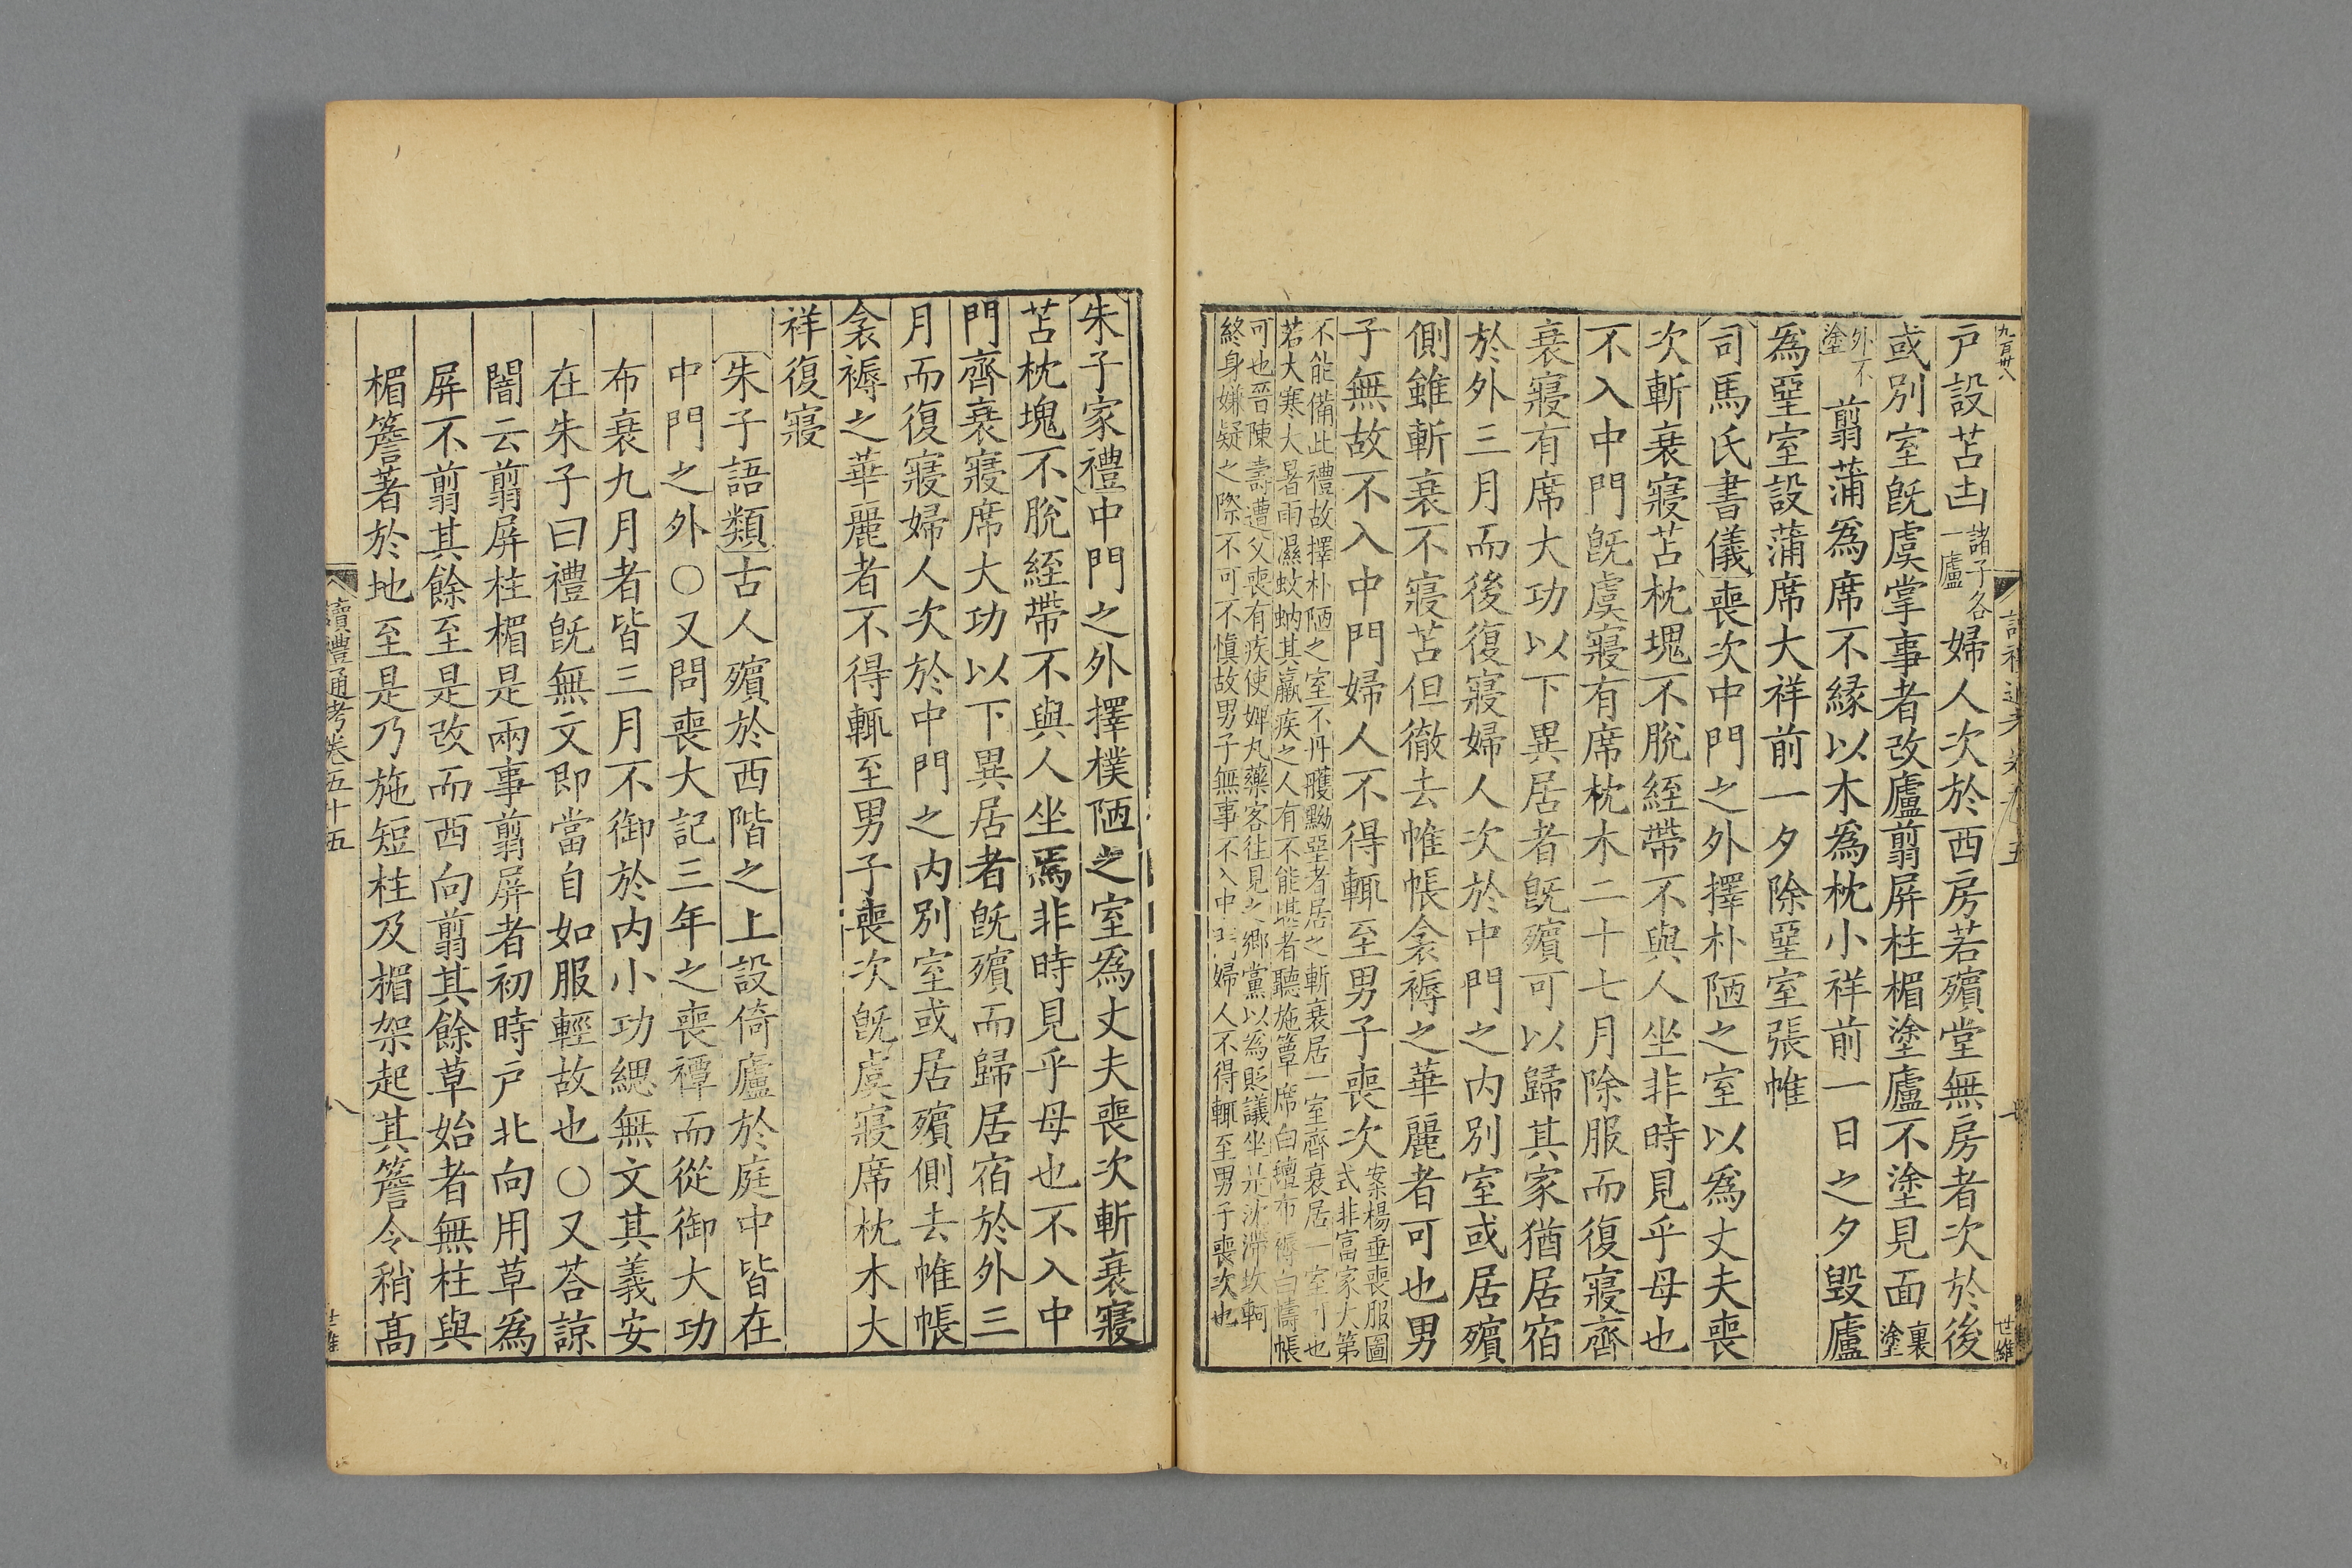 九百卅八
戶設苫凷諸子各一廬婦人次於西房若殯堂無房者次於後
或別室旣虞掌事者改廬翦屏柱楣塗廬不塗見面裏塗
外不塗翦蒲爲席不緣以木爲枕小祥前一日之夕毀廬
爲堊室設蒲席大祥前一夕除堊室張帷
司馬氏書儀喪次中門之外擇朴陋之室以爲丈夫喪
次斬衰寢苫枕塊不脫絰帶不與人坐非時見乎母也
不入中門旣虞寢有席枕木二十七月除服而復寢齊
衰寢有席大功以下異居者旣殯可以歸其家猶居宿
於外三月而後復寢婦人次於中門之內別室或居殯
側雖斬衰不寢苫但徹去帷帳衾褥之華麗者可也男
子無故不入中門婦人不得輒至男子喪次案楊垂喪服圖
式非富家大第
不能備此禮故擇朴陋之室不丹雘黝堊者居之斬衰居一室齊衰居一室可也
若大寒大暑雨濕蚊蚋其羸疾之人有不能堪者聽施簟席白氈布褥白幬帳
可也晉陳壽遭父喪有疾使婢丸藥客往見之鄉黨以爲貶議坐是沈滯坎軻
終身嫌疑之際不可不愼故男子無事不入中門婦人不得輒至男子喪次也
世維
朱子家禮中門之外擇樸陋之室爲丈夫喪次斬衰寢
苫枕塊不脫絰帶不與人坐焉非時見乎母也不入中
門齊衰寢席大功以下異居者旣殯而歸居宿於外三
月而復寢婦人次於中門之內別室或居殯側去帷帳
衾褥之華麗者不得輒至男子喪次旣虞寢席枕木大
祥復寢
朱子語類古人殯於西階之上設倚廬於庭中皆在
中門之外○又問喪大記三年之喪禫而從御大功
布衰九月者皆三月不御於內小功緦無文其義安
在朱子曰禮旣無文即當自如服輕故也○又荅諒
闇云翦屏柱楣是兩事翦屏者初時戶北向用草爲
屏不翦其餘至是改而西向翦其餘草始者無柱與
楣簷著於地至是乃施短柱及楣架起其簷令稍高
讀禮通考卷五十五
八
世維